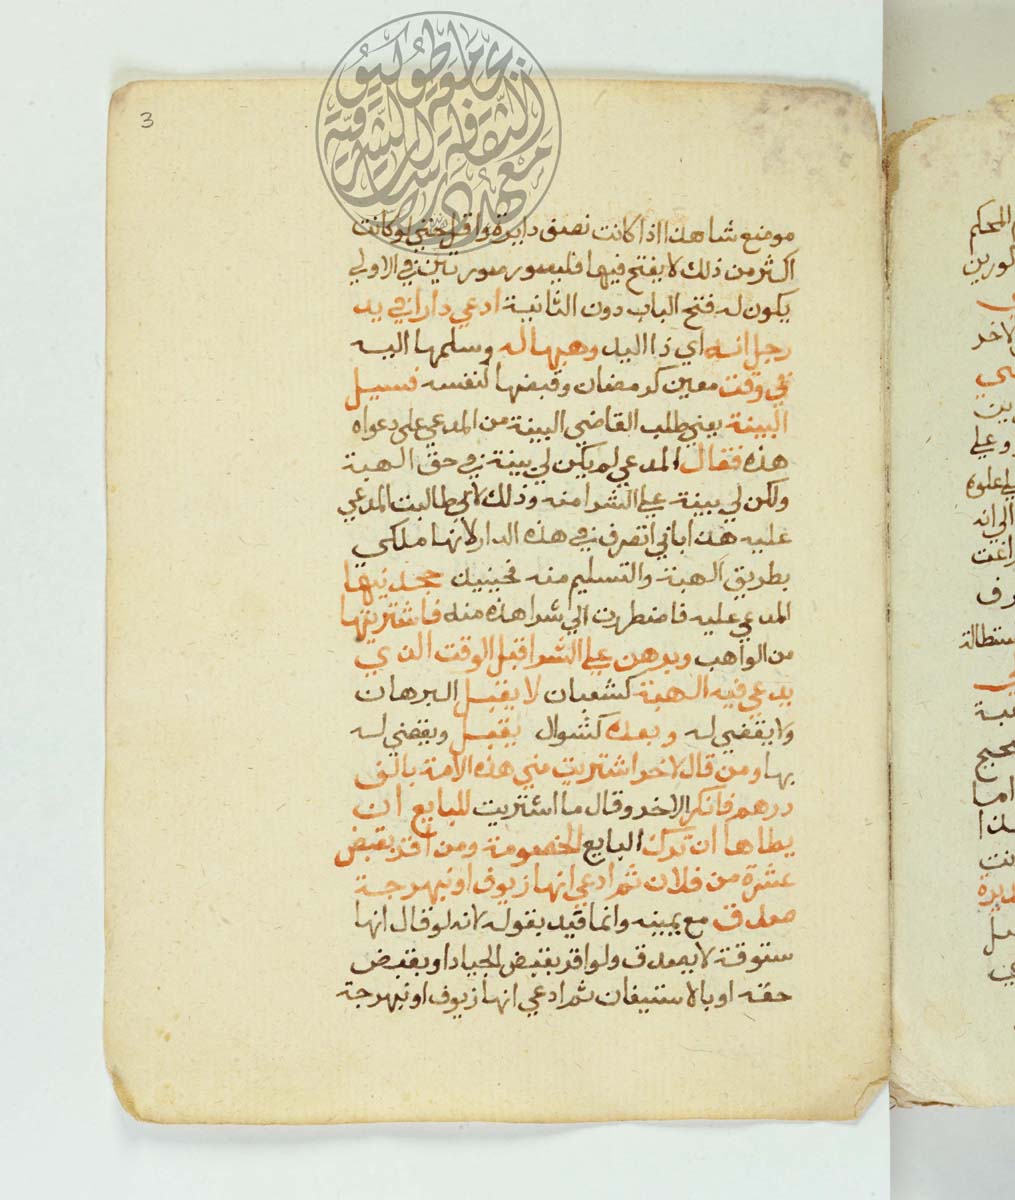 3
موضع شاهدا اذا كانت نصف دايرة واقل حتى لو كانت
اكثر من ذلك لا يفتح فيها فليصور صورتين في الاولي
يكون له فتح الباب دون الثانية ادعي دارا في يد
رجل انه اي ذا اليد وهبها له وسلمها اليه
في وقت معين كرمضان وقبضها لنفسه فسيل
البينة يعني طلب القاضي البينة من المدعي علي دعواه
هذه فقال المدعي لم يكن لي بينة في حق الهبة
ولكن لي بينة علي الشرا منه وذلك لاني طالبت المدعي
عليه هذا باني اتصرف في هذه الدار لانها ملكي
بطريق الهبة والتسليم منه فحينيذ جحدنيها
المدعي عليه فاضطررت الي شرا هذه منه فاشتريتها
من الواهب وبرهن علي الشرا قبل الوقت الذي
يدعي فيه الهبة كشعبان لا يقبل البرهان
ولا يقضي له وبعده كشوال يقبل ويقضي له
بها ومن قال لاخر اشتريت مني هذه الامة بالف
درهم فانكر الاخر وقال ما اشتريت للبايع ان
يطاها ان ترك البايع الخصومة ومن اقر بقبض
عشرة من فلان ثم ادعي انها زيوف او نبهرجة
صدق مع يمينه وانما قيد بقوله لانه لو قال انها
ستوقة لا يصدق ولو اقر بقبض الجياد او بقبض
حقه او بالاستيفان ثم ادعي انها زيوف او نبهرجة